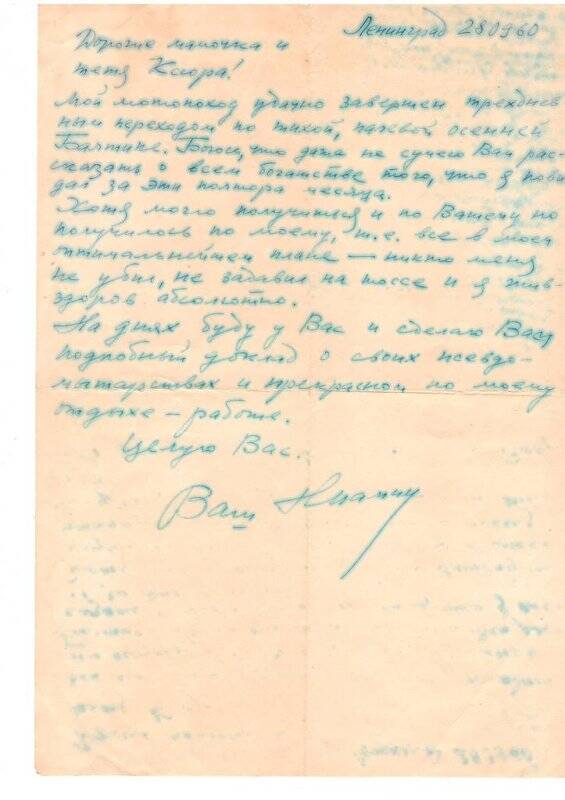 Ленинград 280960
Дорогие мамочка и
тетя Ксюра!
Мой мотопоход удачно завершен трехднев
ным переходом по тихой, осенней
Балтике. Боюсь, что даже не сумею Вам рас-
сказать о всем богатстве того, что я пови
дал за эти полтора месяца.
Хотя могло получиться и по Вашему но
получилось по моему, т.е. все в моем
оптимальнейшем плане — никто меня
не убил, не задавил на шоссе и я жив-
здоров абсолютно.
На днях буду у Вас и сделаю Вам
подробный доклад о своих псевдо-
мытарствах и прекрасном по моему
отдыхе – работе.
Целую Вас.
Ваш